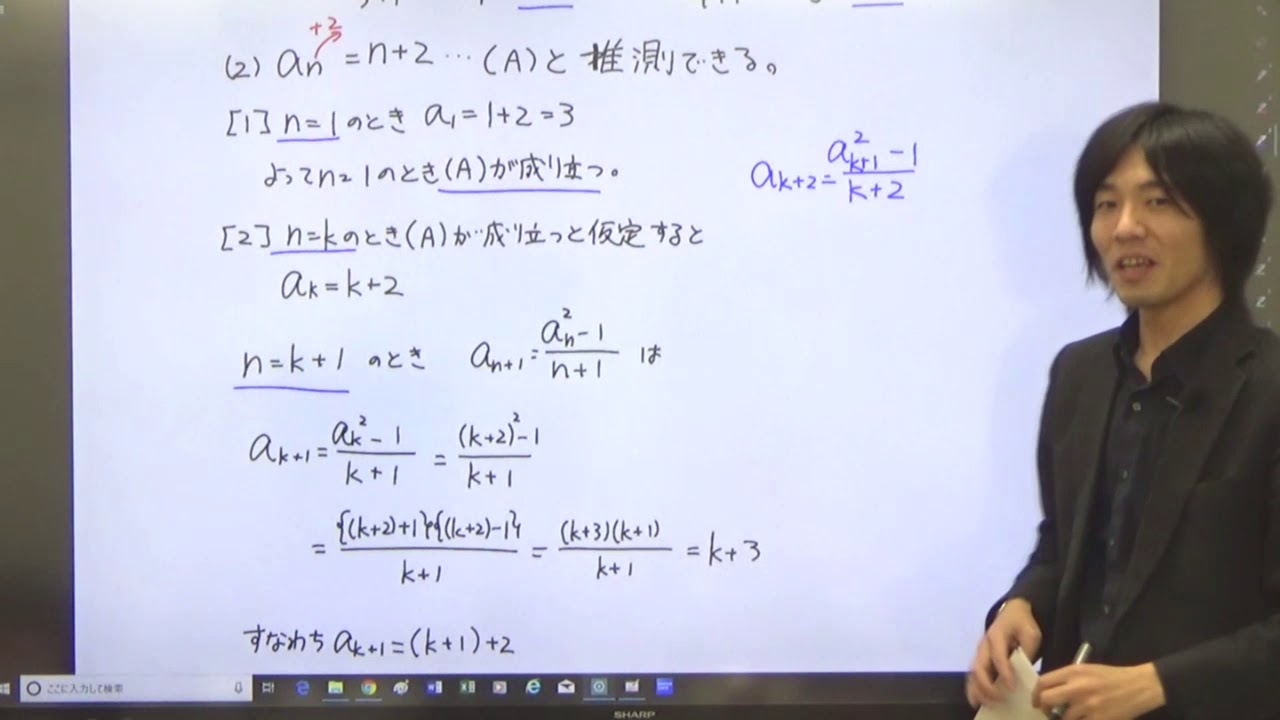 +2
(2) aₙ = n+2 … (A) と推測できる。
[1] n=1 のとき a₁=1+2=3
よって n=1 のとき (A) が成り立つ。
a_{k+2} = (a_{k+1}² - 1)/(k+2)
[2] n=k のとき (A) が成り立つと仮定すると
a_k = k+2
n=k+1 のとき a_{n+1} = (a_n² - 1)/(n+1) は
a_{k+1} = (a_k² - 1)/(k+1) = ((k+2)² - 1)/(k+1)
= {(k+2)+1}{(k+2)-1}/(k+1) = (k+3)(k+1)/(k+1) = k+3
すなわち a_{k+1} = (k+1)+2
ここに入力して検索
SHARP